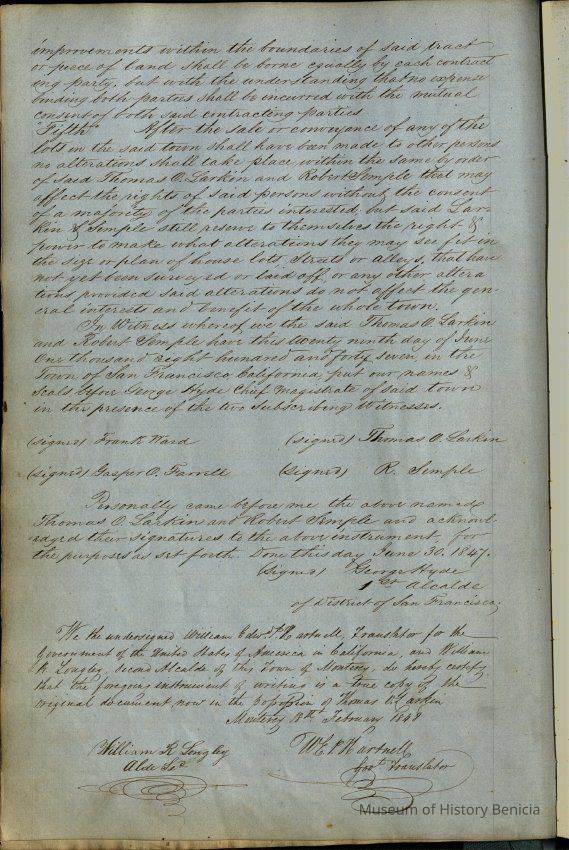 improvements within the boundaries of said tract
or piece of land shall be borne equally by each contract
ing party, but with the understanding that no expense
binding both parties shall be incurred with the mutual
consent of both said contracting parties
"Fifth" After the sale or conveyance of any of the
lots in the said town shall have been made to other persons
no alterations shall take place within the same by order
of said Thomas O. Larkin and Robert Semple that may
affect the rights of said persons without the consent
of a majority of the parties interested, but said Lar-
kin & Semple still reserve to themselves the right &
power to make what alterations they may see fit in
the size or plan of house lots Streets or alleys, that have
not yet been surveyed or laid off, or any other altera
tions provided said alterations do not affect the gen-
eral interests and benefit of the whole town.
In Witness whereof we the said Thomas O. Larkin
and Robert Semple have this twenty ninth day of June
One thousand eight hundred and forty seven, in the
Town of San Francisco, California, put our names &
Seals before George Hyde Chief Magistrate of said town
in the presence of the two Subscribing Witnesses.
(signed) Frank Ward (signed) Thomas O. Larkin
(signed) Gasper O. Farrell (signed) R. Semple
Personally came before me the above named
Thomas O. Larkin and Robert Semple and acknowl-
edged their signatures to the above instrument, for
the purposes as set forth. Done this day June 30. 1847.
(signed) George Hyde
1st Alcalde
of District of San Francisco,
We the undersigned William Edwd. P. Hartnell, Translator for the
Government of the United States of America in California, and William
R. Longley, Second Alcalde of this Town of Monterey, do hereby certify
that the foregoing instrument of writing is a true copy of the
original document now in the possession of Thomas O. Larkin
Monterey 18th February 1848
William R Longley W.E.P. Hartnell
Alde 2d Govt Translator
Museum of History Benicia